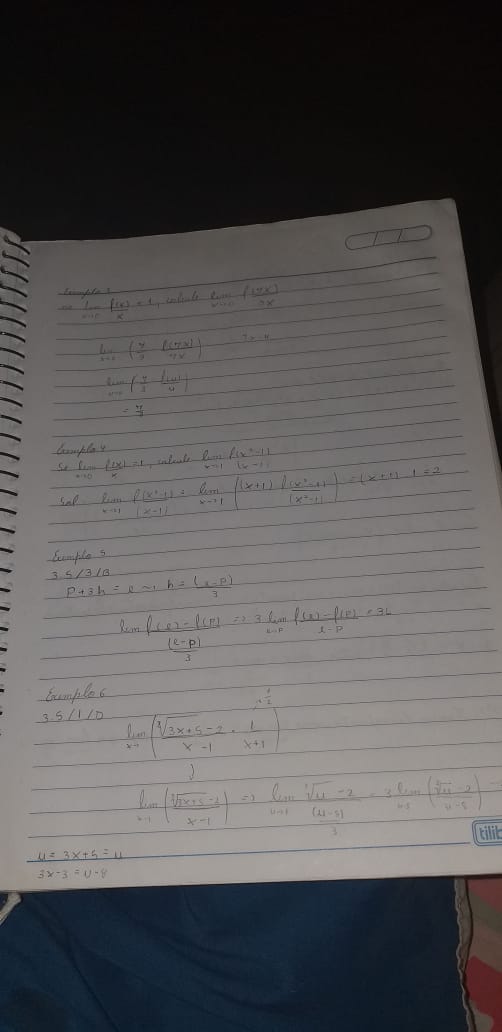 Exemplo 3
Se lim x→0 f(x)/x = 1, calcule lim x→0 f(7x)/3x
lim x→0 (7/3 · f(7x)/7x) 7x = u
lim u→0 (7/3 · f(u)/u)
= 7/3
Exemplo 4
Se lim x→0 f(x)/x = 1, calcule lim x→1 f(x²-1)/(x-1)
Sol. lim x→1 f(x²-1)/(x-1) = lim x→1 ((x+1) f(x²-1)/(x²-1)) = (x+1) · 1 = 2
Exemplo 5
3.5/3/B
P+3h = e ~ h = (e-p)/3
lim f(e) - f(p)/((e-p)/3) => 3 lim e→p f(e) - f(p)/e-p = 3L
Exemplo 6
3.5/1/D
lim (∛3x+5 - 2/x-1 · 1/x+1) 1/2
lim x→1 (∛3x+5 - 2/x-1) => lim ∛u - 2/((u-8)/3) = 3 lim (∛u - 2/u-8)
u = 3x+5 = u
3x-3 = u-8
tilib